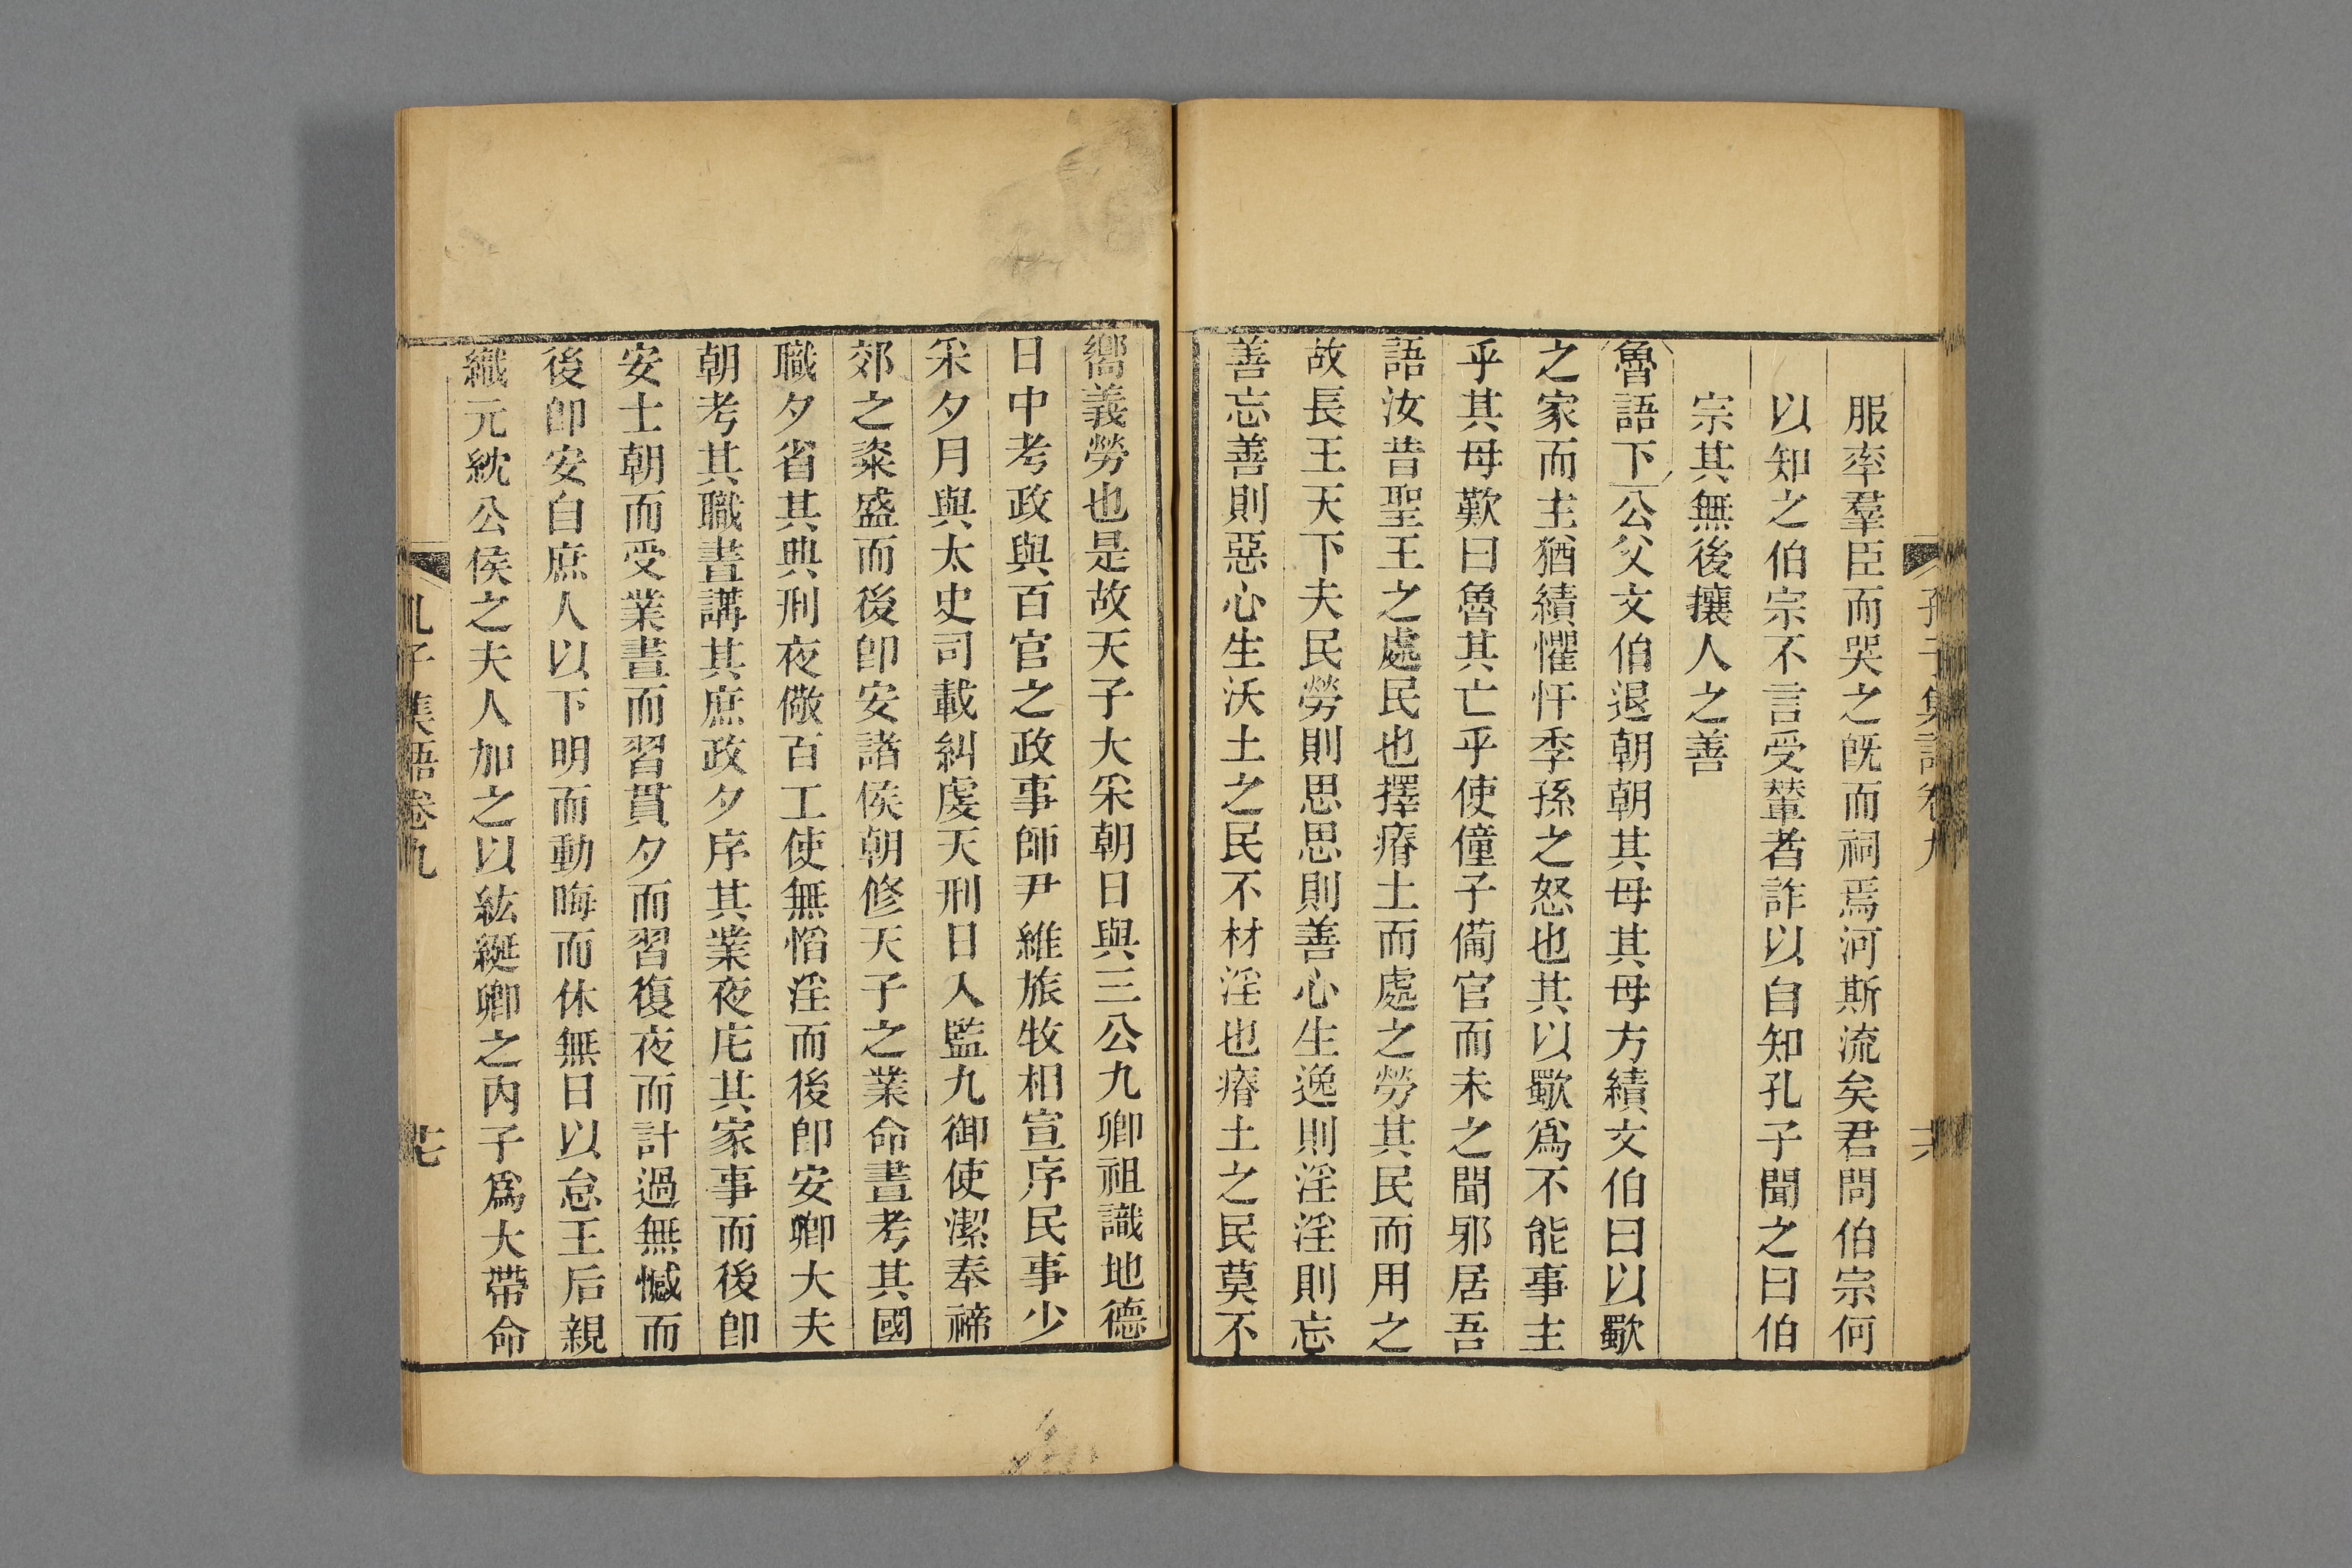 服率羣臣而哭之既而祠焉河斯流矣君問伯宗何
以知之伯宗不言受輦者詐以自知孔子聞之曰伯
宗其無後攘人之善
魯語下公父文伯退朝朝其母其母方績文伯曰以歜
之家而主猶績懼忓季孫之怒也其以歜爲不能事主
乎其母歎曰魯其亡乎使僮子僃官而未之聞邪居吾
語汝昔聖王之處民也擇瘠土而處之勞其民而用之
故長王天下夫民勞則思思則善心生逸則淫淫則忘
善忘善則惡心生沃土之民不材淫也瘠土之民莫不
嚮義勞也是故天子大采朝日與三公九卿祖識地德
日中考政與百官之政事師尹維旅牧相宣序民事少
采夕月與太史司載糾虔天刑日入監九御使潔奉禘
郊之粢盛而後卽安諸侯朝修天子之業命晝考其國
職夕省其典刑夜儆百工使無慆淫而後卽安卿大夫
朝考其職晝講其庶政夕序其業夜庀其家事而後卽
安士朝而受業晝而習貫夕而習復夜而計過無憾而
後卽安自庶人以下明而動晦而休無日以怠王后親
織元紞公侯之夫人加之以紘綖卿之內子爲大帶命
孔子集語卷九